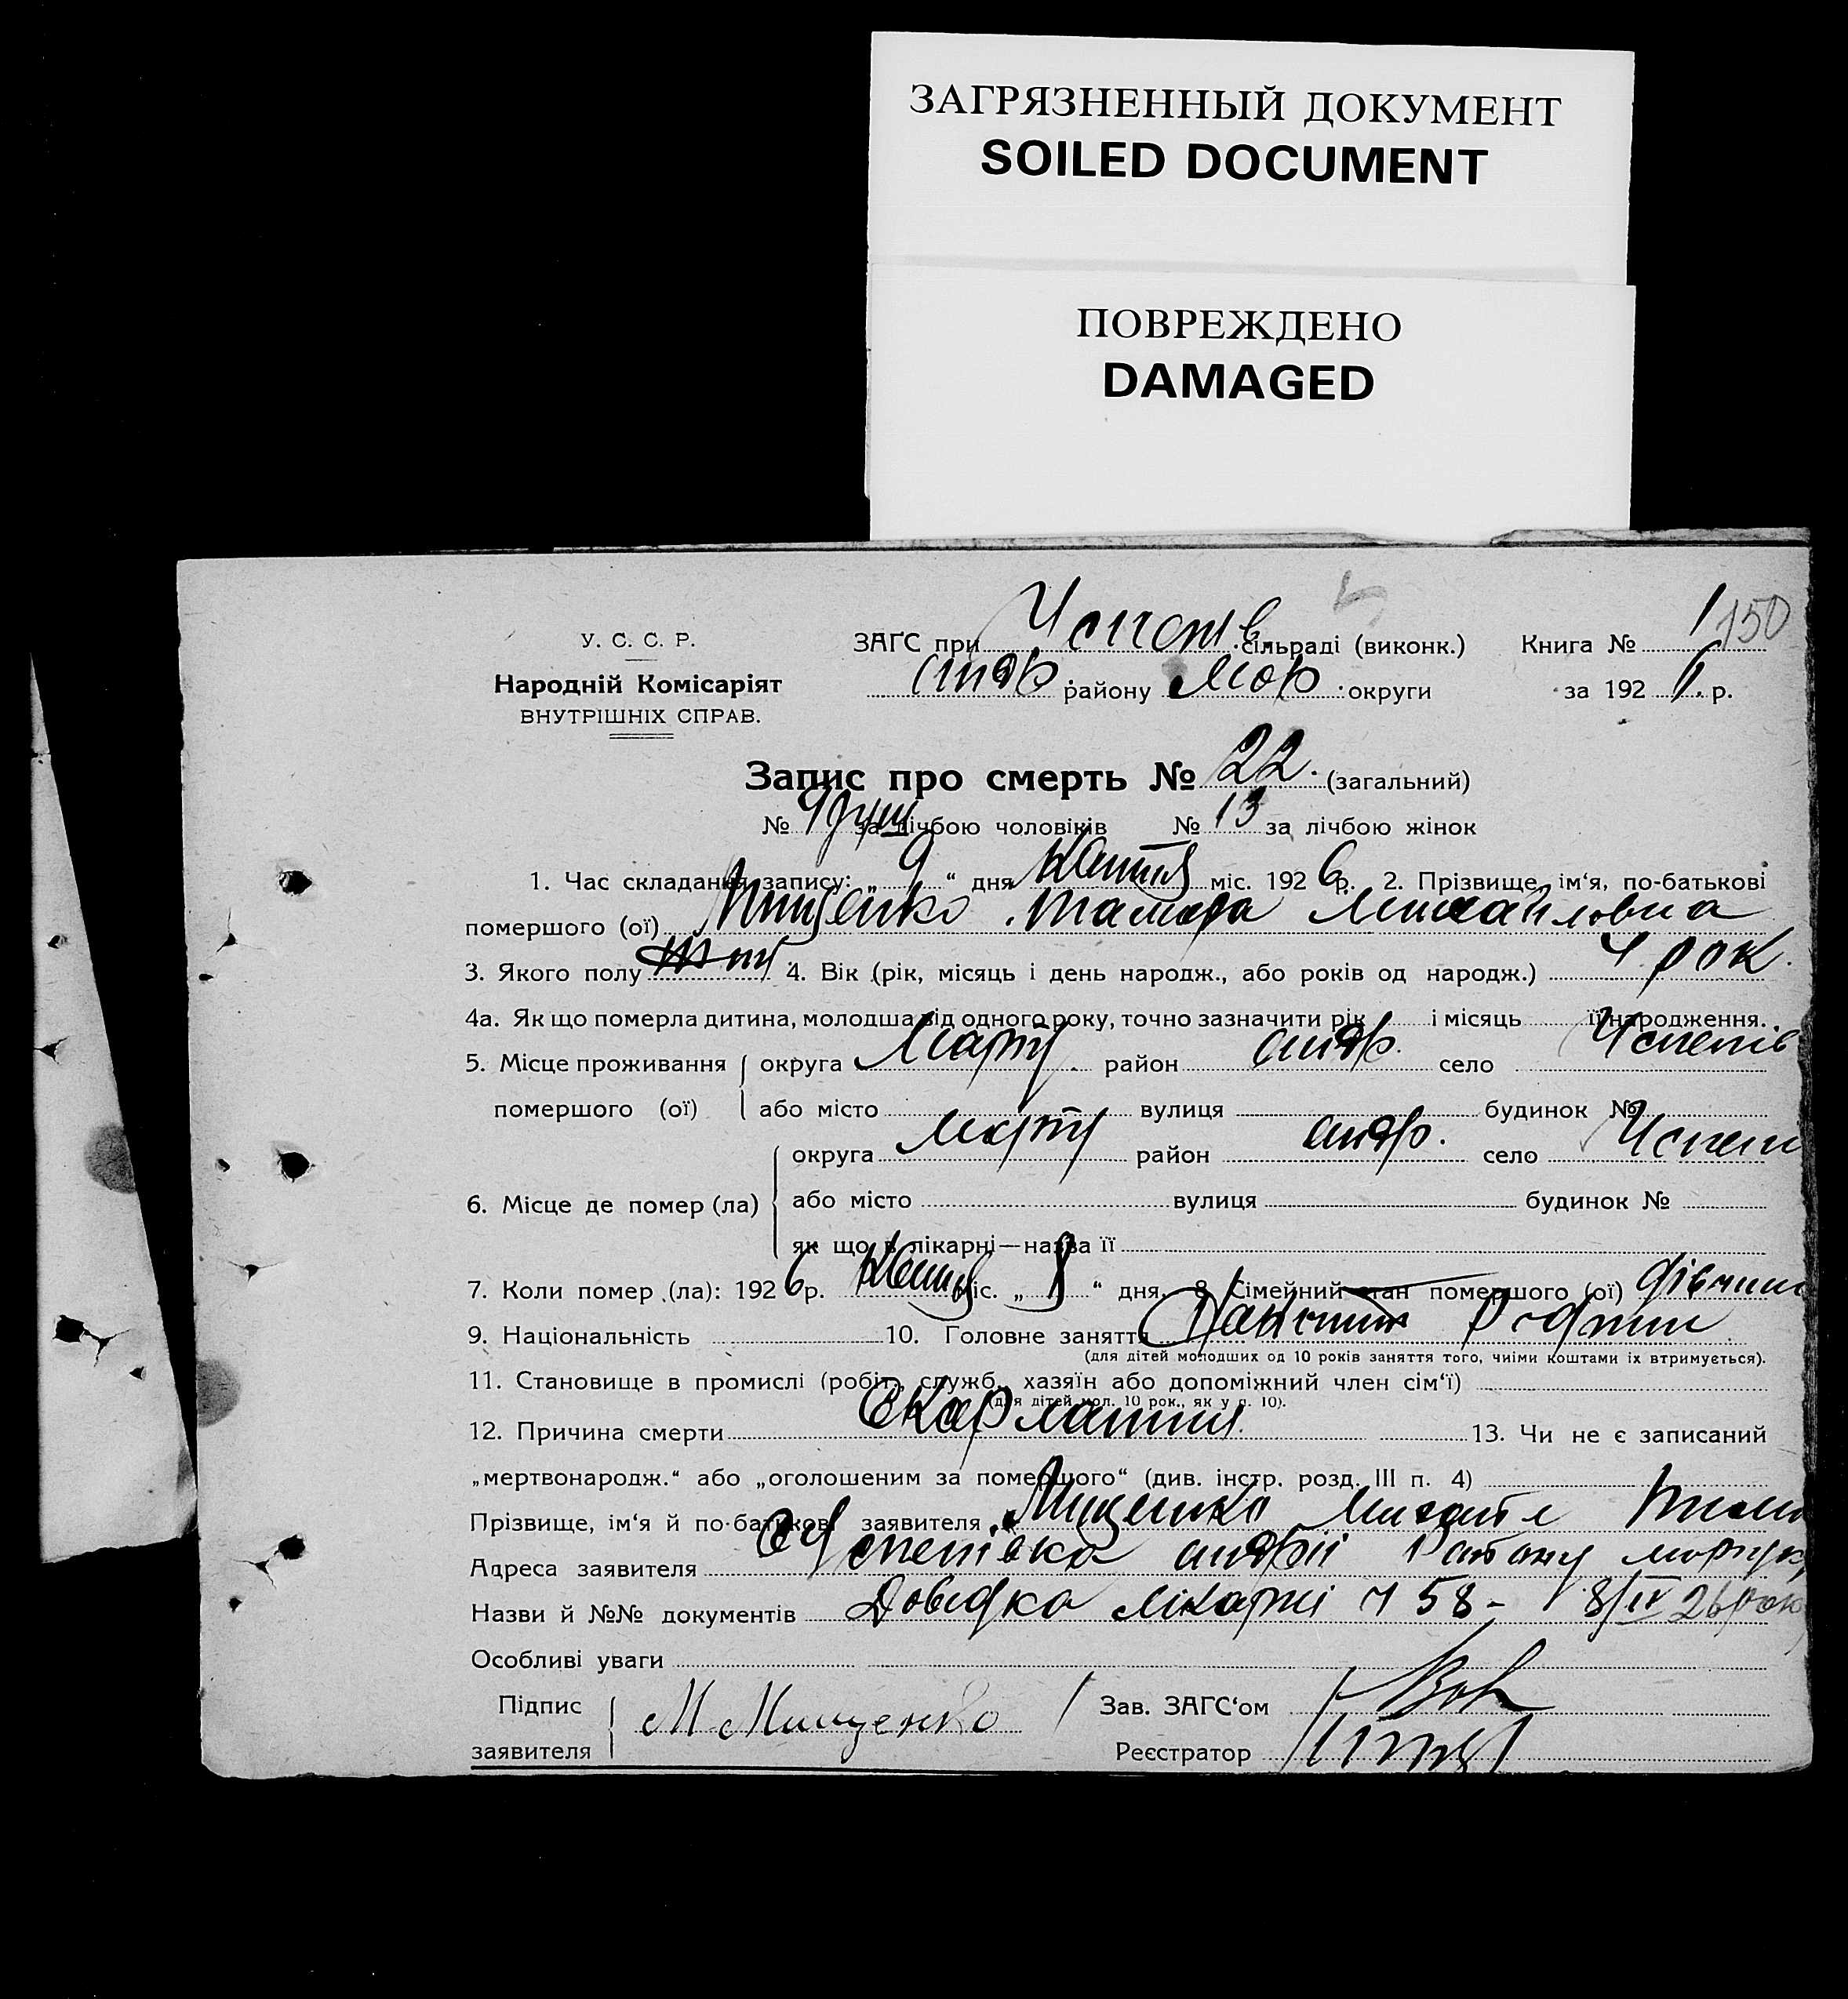 ЗАГРЯЗНЕННЫЙ ДОКУМЕНТ
SOILED DOCUMENT
ПОВРЕЖДЕНО
DAMAGED
У. С. С. Р.
Народній Комісаріят
ВНУТРІШНІХ СПРАВ.
ЗАГС при Успенів. сільраді (виконк.) Книга № 1 150
андр. району Мар. округи за 1926 р.
Запис про смерть № 22. (загальний)
№ за лічбою чоловіків № 13 за лічбою жінок
1. Час складання запису: „9“ дня Квітня міс. 1926 р. 2. Прізвище, ім‘я, по-батькові
помершого (ої) Мищенко Тамара Михайловна
3. Якого полу 4. Вік (рік, місяць і день народж., або років од народж.) 4 рок.
4а. Як що померла дитина, молодша від одного року, точно зазначити рік і місяць її народження.
5. Місце проживання округа Маріу район андр. село Успенів
помершого (ої) або місто вулиця будинок №
округа Маріу район андр. село Успен
6. Місце де помер (ла) або місто вулиця будинок №
як що в лікарні—назва її
7. Коли помер (ла): 1926 р. Квітня міс. „8“ дня. 8. Сімейний стан помершого (ої) дівчина
9. Національність 10. Головне заняття
(для дітей молодших од 10 років заняття того, чиїми коштами їх втримується).
11. Становище в промислі (робіт., служб., хазяїн або допоміжний член сім‘ї)
(для дітей мол. 10 рок., як у п. 10).
12. Причина смерти Скарлатина. 13. Чи не є записаний
„мертвонародж.“ або „оголошеним за помершого“ (див. інстр. розд. III п. 4)
Прізвище, ім‘я й по-батькові заявителя Мищенко Михайло
Адреса заявителя с Успенівка андрії Району маріук
Назви й №№ документів Довидка лікарні ч 58 - 8/IV 26 року
Особливі уваги
Підпис заявителя М Мищенко Зав. ЗАГС‘ом
Реєстратор